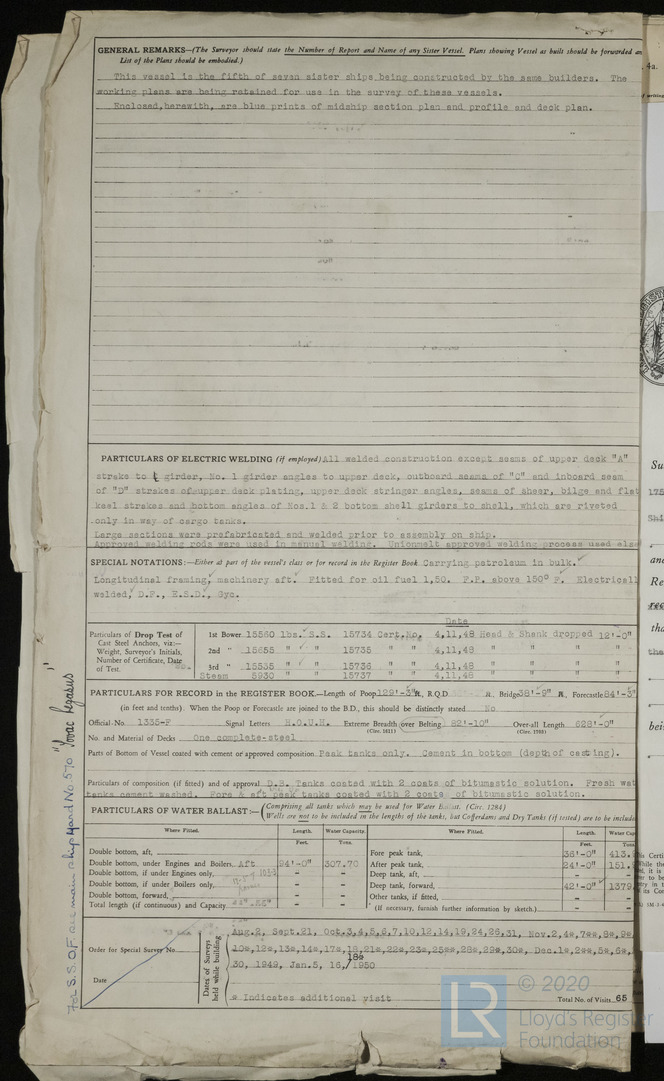 GENERAL REMARKS—(The Surveyor should state the Number of Report and Name of any Sister Vessel. Plans showing Vessel as built should be forwarded
List of the Plans should be embodied.)
This vessel is the fifth of seven sister ships being constructed by the same builders. The
working plans are being retained for use in the survey of these vessels.
Enclosed,herewith, are blue prints of midship section plan and profile and deck plan.
PARTICULARS OF ELECTRIC WELDING (if employed) All welded construction except seams of upper deck "A"
strake to ℄ girder, No. 1 girder angles to upper deck, outboard seams of "C" and inboard seam
of "D" strakes of upper deck plating, upper deck stringer angles, seams of sheer, bilge and flat
keel strakes and bottom angles of Nos.1 & 2 bottom shell girders to shell, which are riveted
only in way of cargo tanks.
Large sections were prefabricated and welded prior to assembly on ship.
Approved welding rods were used in manual welding. Unionmelt approved welding process used also
SPECIAL NOTATIONS:—Either at part of the vessel's class or for record in the Register Book Carrying petroleum in bulk.
Longitudinal framing, machinery aft. Fitted for oil fuel 1,50. F.P. above 150° F. Electricall
welded, D.F., E.S.D., Gyc.
Date
Particulars of Drop Test of Cast Steel Anchors, viz:— Weight, Surveyor's Initials, Number of Certificate, Date of Test.
1st Bower 15560 lbs. S.S. 15734 Cert.No. 4,11,48 Head & Shank dropped 12'-0"
2nd " 15655 " " " 15735 " " 4,11,48 " " " "
3rd " 15535 " " " 15736 " " 4,11,48 " " " "
Steam 5930 " " " 15737 " " 4,11,48 " " " "
PARTICULARS FOR RECORD in the REGISTER BOOK.—Length of Poop 129'-3" ft., R.Q.D. ft., Bridge 38'-9" ft., Forecastle 84'-3"
(in feet and tenths). When the Poop or Forecastle are joined to the B.D., this should be distinctly stated No
Official No. 1335-F Signal Letters H.O.U.H. Extreme Breadth over Belting 82'-10" Over-all Length 628'-0"
(Circ. 1611) (Circ. 1703)
No. and Material of Decks One complete-steel
Parts of Bottom of Vessel coated with cement or approved composition Peak tanks only. Cement in bottom (depth of casting).
Particulars of composition (if fitted) and of approval D.B. Tanks coated with 2 coats of bitumastic solution. Fresh wat
tanks cement washed. Fore & aft peak tanks coated with 2 coats of bitumastic solution.
PARTICULARS OF WATER BALLAST:— (Comprising all tanks which may be used for Water Ballast. (Circ. 1284)
Wells are not to be included in the lengths of the tanks, but Cofferdams and Dry Tanks (if tested) are to be include
Where Fitted. Length. Water Capacity. Where Fitted. Length. Water Cap
Feet. Tons. Feet. Tons.
Double bottom, aft, Fore peak tank, 36'-0" 413.
Double bottom, under Engines and Boilers, Aft 94'-0" 307.70 After peak tank, 24'-0" 151.
Double bottom, if under Engines only, – – Deep tank, aft, – –
Double bottom, if under Boilers only, – – Deep tank, forward, 42'-0" 1379
Double bottom, forward, – – Other tanks, if fitted, – –
Total length (if continuous) and Capacity (If necessary, furnish further information by sketch.)
Order for Special Survey No.
Date
Dates of Surveys held while building
Aug.2, Sept.21, Oct.3,4,5,6,7,10,12,14,19,24,26,31, Nov.2,4*,7**,8*,9*
10*,12*,13*,14*,17*,18,21*,22*,23*,25**,28*,29*,30*, Dec.1*,2**,5*,6*,
18*
30, 1949, Jan.5, 16,/1950
* Indicates additional visit
Total No. of Visits 65
© 2020
LR
Lloyd's Register
Foundation